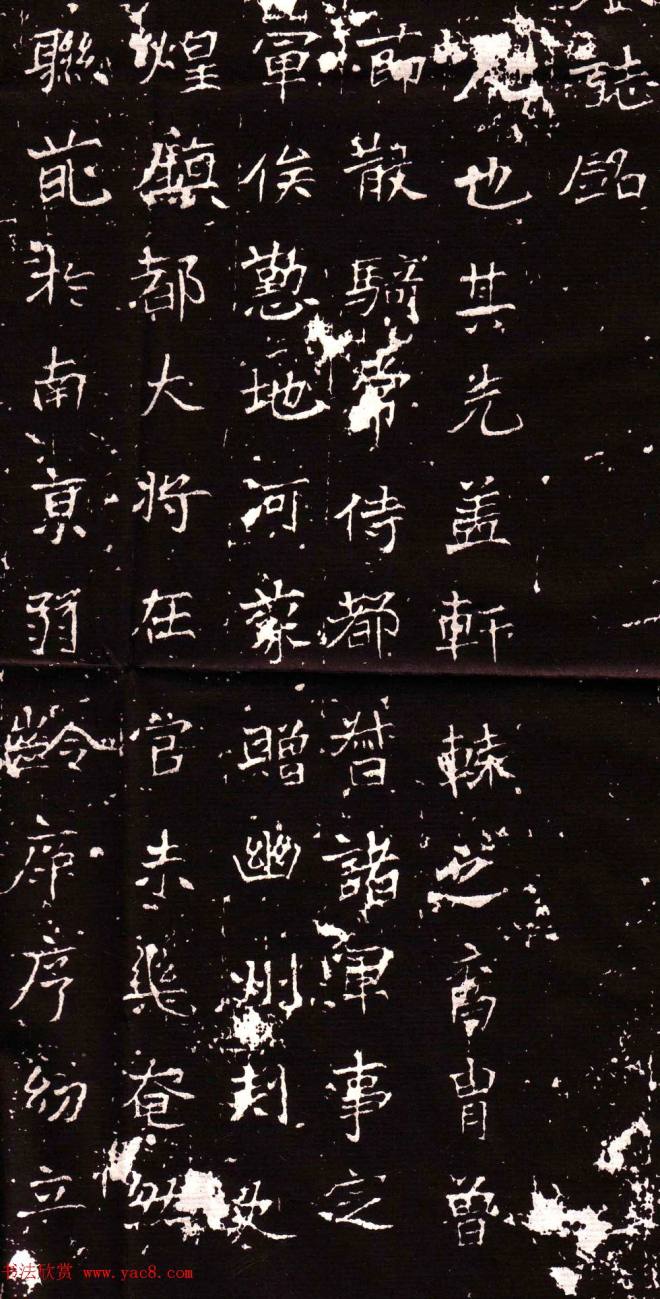 誌銘
也其先盖軒轅之裔胄曽
節散騎常侍都督諸軍事定
軍俟懃地河蒙贈幽州刺史
煌鎮都大将在官未幾奄然
聯芘於南京弱齡庠序幼立
书法欣赏 www.yac8.com